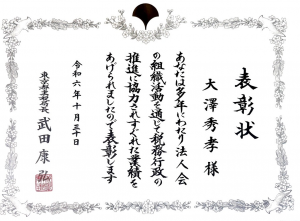 表彰状
大澤秀孝様
あなたは多年にわたり法人会
の組織活動を通じて税務行政の
推進に協力されすぐれた業績を
あげられましたので表彰します
令和六年十月三十日
東京都主税局長
武田康弘